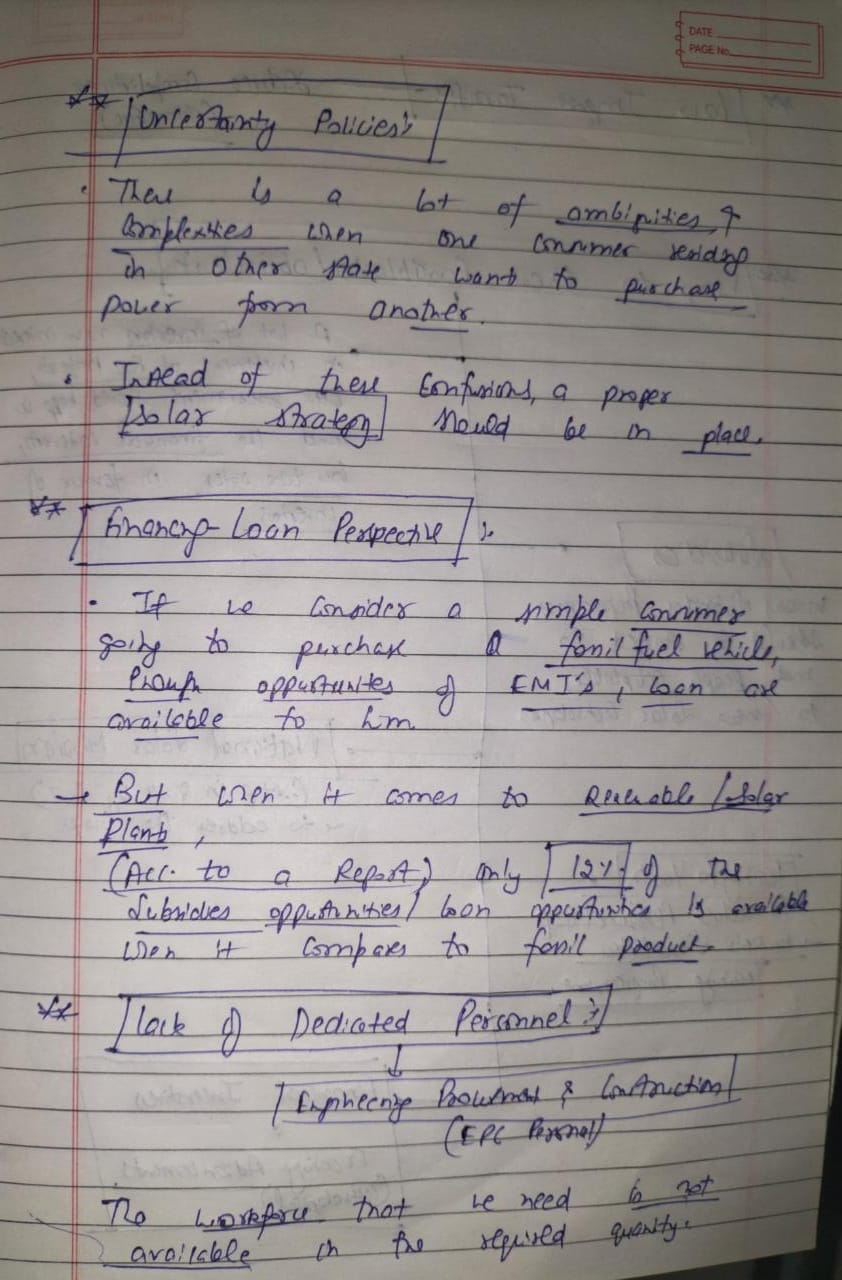 DATE
PAGE No.
** Uncertainty Policies :
• There is a lot of ambiguities &
Complexities when one consumer residing
in other state wants to purchase
power from another.
• Instead of these Confusions, a proper
Solar Strategy should be in place.
** Financing Loan Perspective :
• If we Consider a simple consumer
going to purchase a fossil fuel vehicle,
Enough oppurtunites of EMI's, loan are
available to him
→ But when it comes to Renewable / Solar
Plants,
(Acc. to a Report) only 12% of the
Subsidies oppurtinities / loan oppurtunities is available
when it Compares to fossil product.
** Lack of Dedicated Personnel :
↓
Engineering Procurement & Construction
(EPC Personnel)
The workforce that we need is not
available in the required quantity.